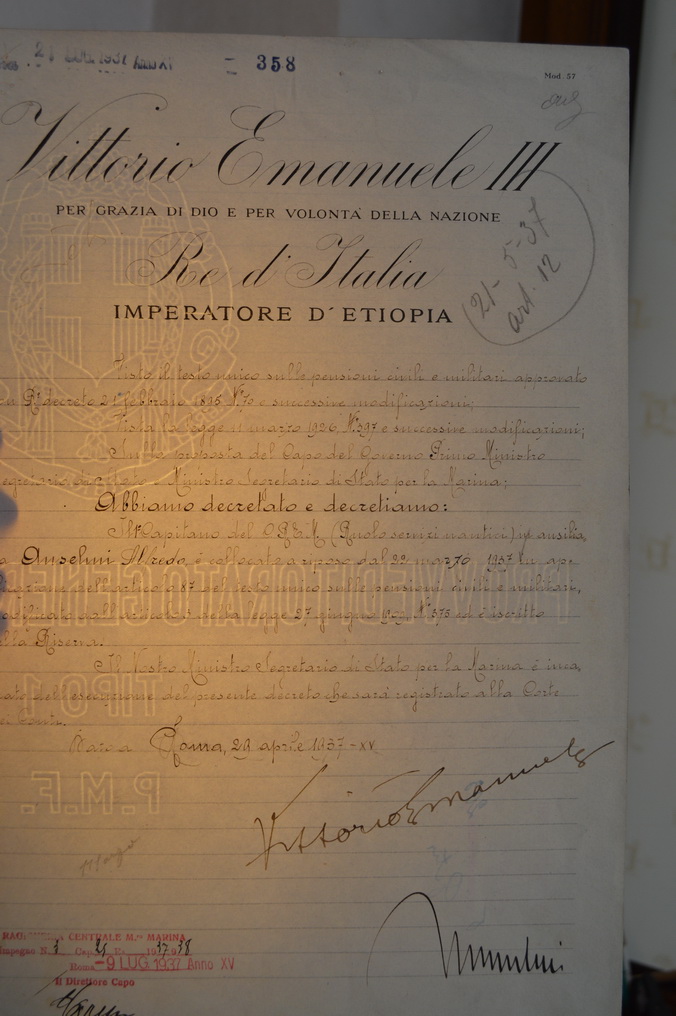 21 1937 Anno XV
358
Mod. 57
Vittorio Emanuele III
PER GRAZIA DI DIO E PER VOLONTÀ DELLA NAZIONE
21-5-37
art. 12
Re d'Italia
IMPERATORE D'ETIOPIA
Visto il testo unico sulle pensioni civili e militari approvato
R° decreto 21 febbraio 1895 N° 70 e successive modificazioni;
Vista la legge 11 marzo 1926, N° 397 e successive modificazioni;
Sulla proposta del Capo del Governo Primo Ministro
egretario di Stato, Ministro Segretario di Stato per la Marina;
Abbiamo decretato e decretiamo:
Il Capitano del C.R.E.M. (Ruolo servizi nautici) in ausilia
Anselmi Alfredo è collocato a riposo dal 22 marzo 1937 in ap-
cazione dell'articolo 87 del testo unico sulle pensioni civili e militari,
odificato dall'articolo 3 della legge 27 giugno N° 375 ed è iscritto
ella Riserva.
Il Nostro Ministro Segretario di Stato per la Marina è inca,
ato dell'esecuzione del presente decreto che sarà registrato alla Corte
ei Conti.
Dato a Roma, 29 aprile 1937-XV
P.M.F.
Vittorio Emanuele
Mussolini
RAGIONERIA CENTRALE M.ro MARINA
Impegno N. Cap. Es. 1937 38
Roma -9 LUG 1937 Anno XV
Il Direttore Capo